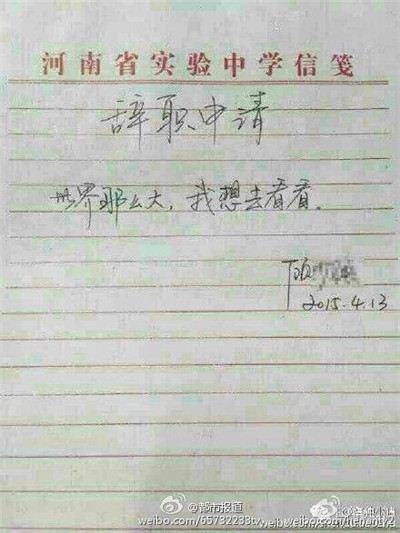 河南省实验中学信笺
辞职申请
世界那么大，我想去看看。
顾
2015.4.13
@都市报道
weibo.com/65732233